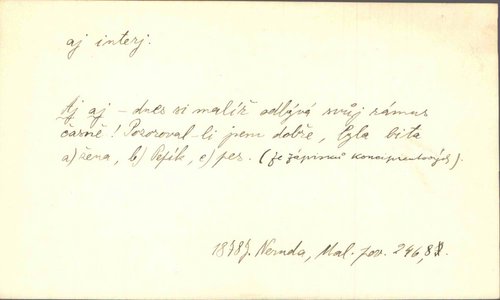 aj interj.
Aj aj – dnes si malíř odbývá svůj rámus
časně! Pozoroval-li jsem dobře, byla bita
a) žena, b) Pepík, c) pes. (ze zápisků koncipientových).
1878 J. Neruda, Mal. pov. 246,8.